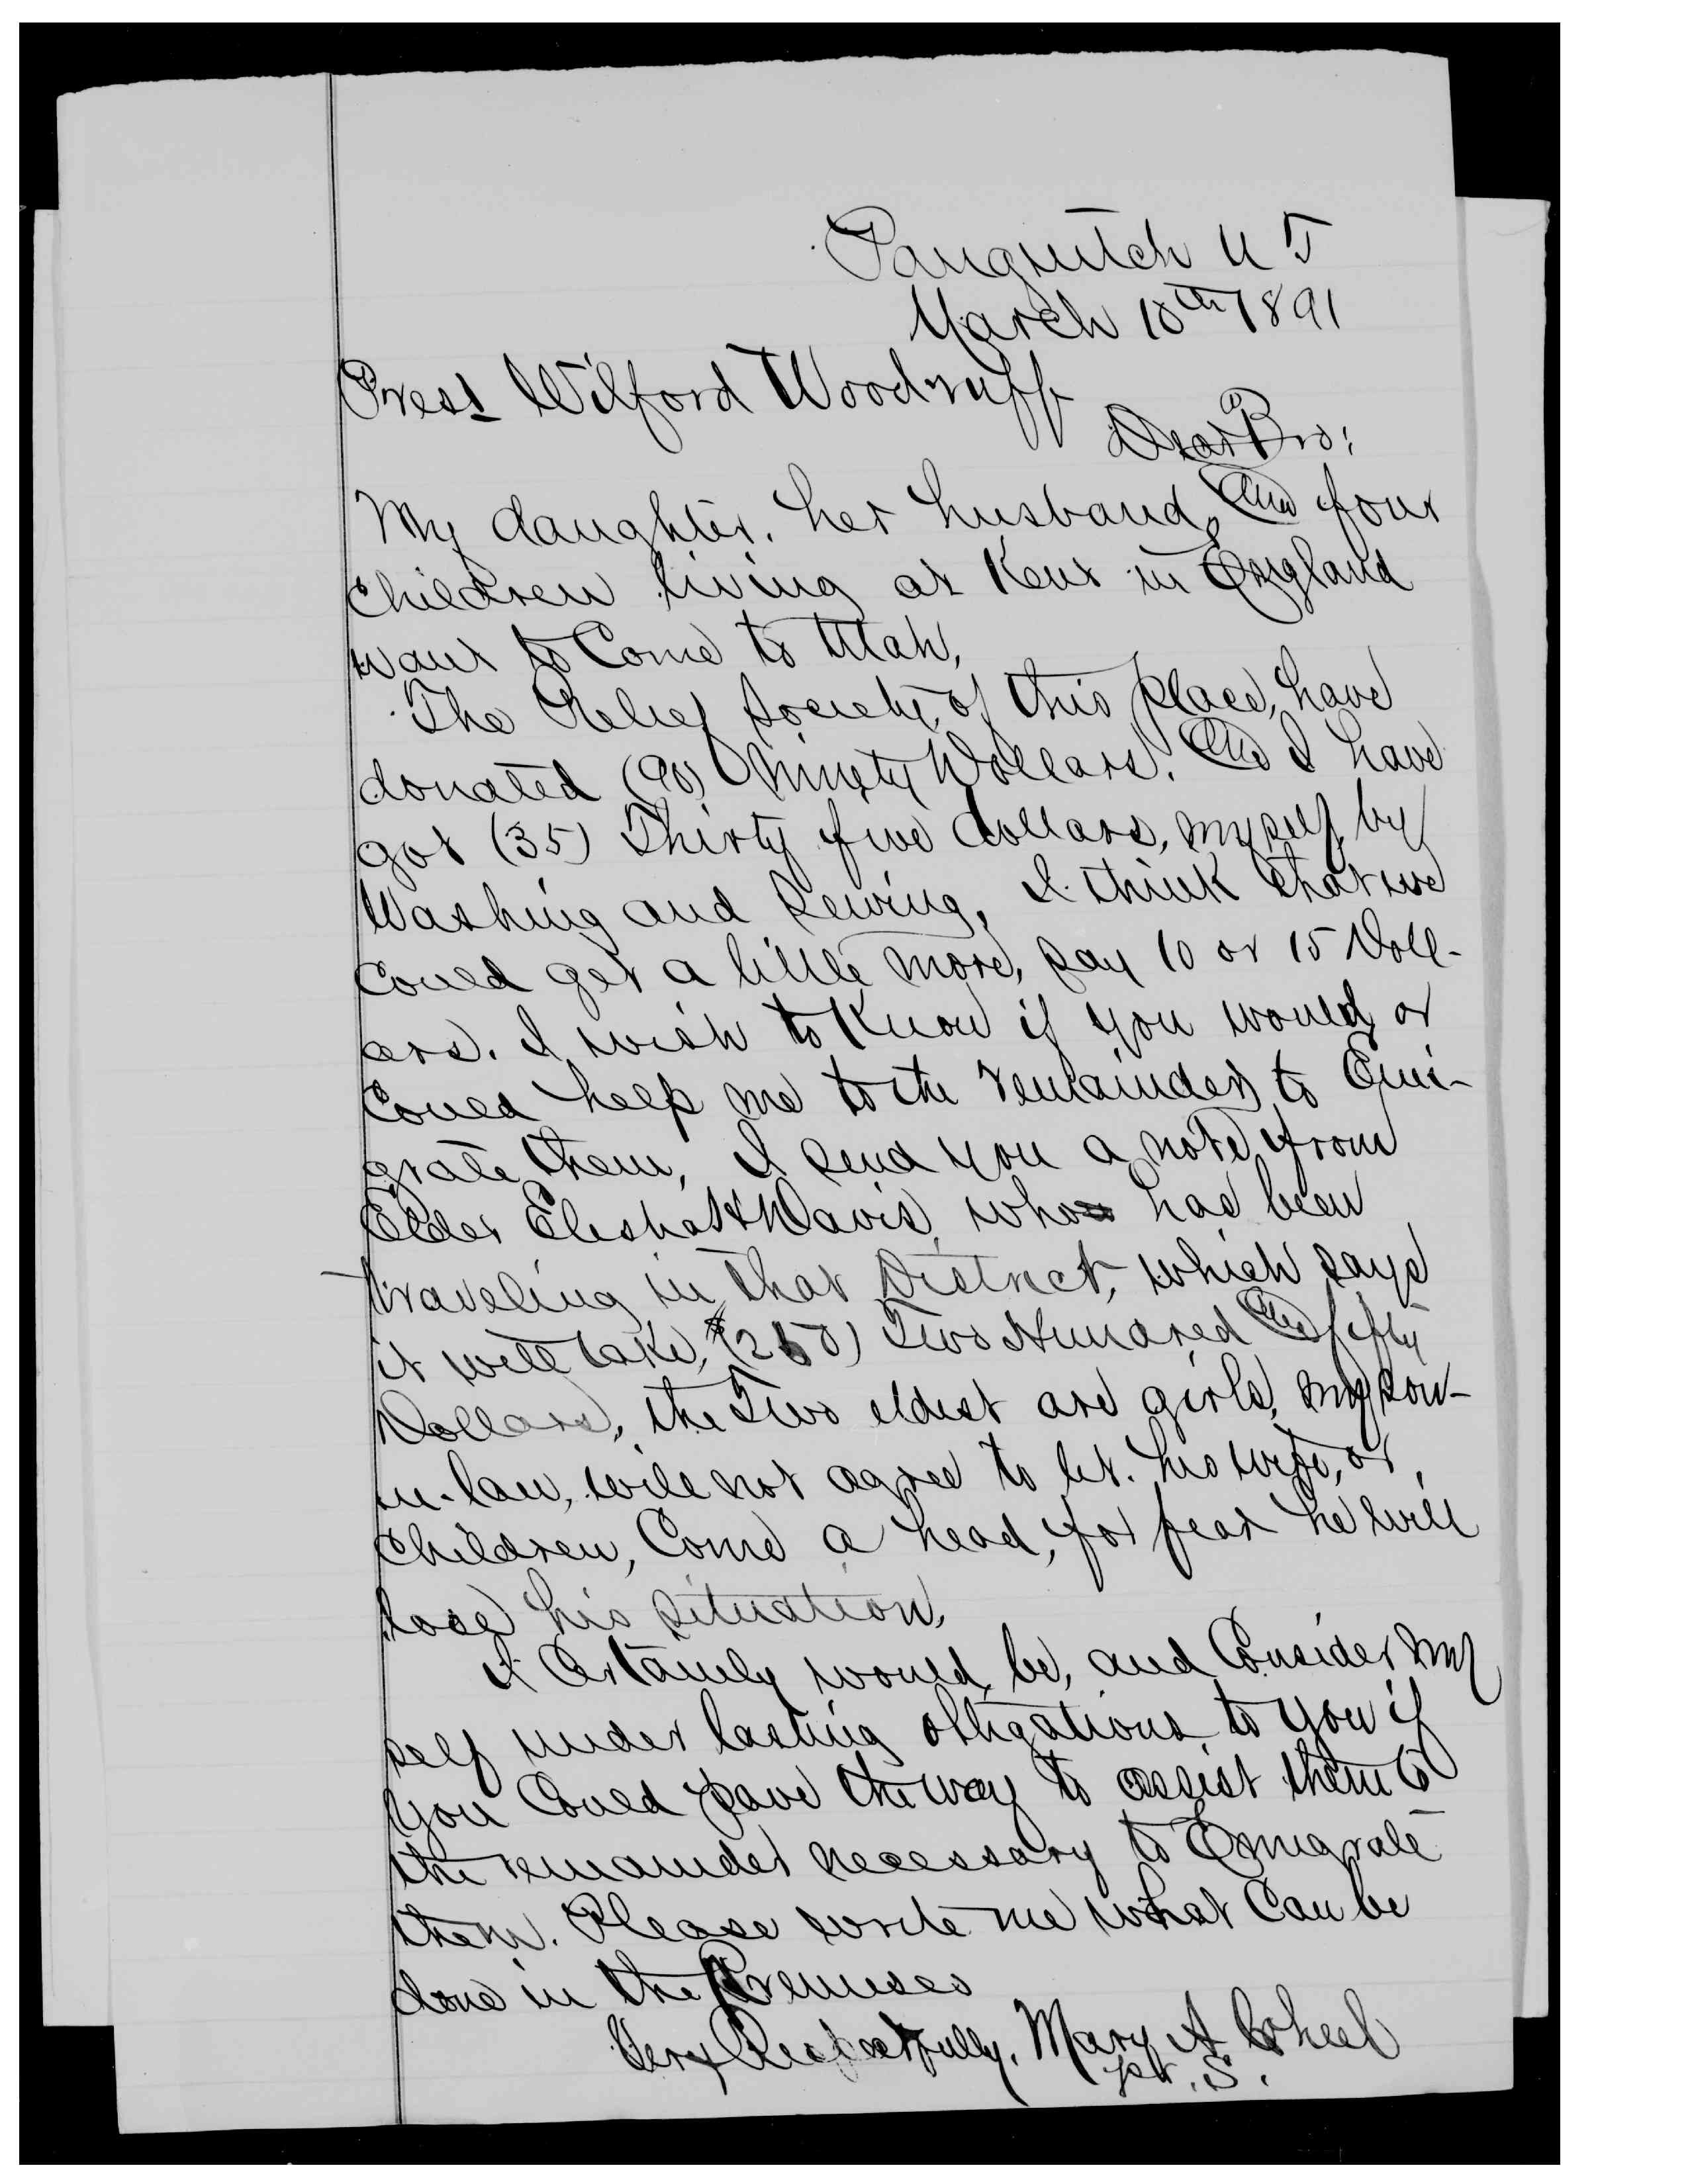 Panguitch U T
March 10th 1891
Prest Wilford Woodruff
Dear Bro;
My daughter, her husband, and four
children living at Kent in England
want to Come to Utah,
The Relief Society, of this place, have
donated (90) Ninety Dollars. And I have
got (35) Thirty five dollars, myself, by
Washing and Sewing, I think that we
Could get a little more, say 10 or 15 Doll-
ars. I wish to Know if you would, or
Could help me to the remainder, to Emi-
grate them, I send you a note, from
Elder Elesha H Davis, who has been
traveling in that District, which says
it will take, $(250) Two Hundred and fifty
Dollars, the Two eldest are girls, my son-
in-law, will not agree to let. his wife, or
children, Come a head, for fear he will
loose his situation,
I Certainly would, be, and Consider my
self under lasting obligations to you if
you Could pave the way to assist them to
the remainder necessary to Emigrate
them. Please write me what Can be
done in the Premises
Very Respectfully, Mary A
per. S.